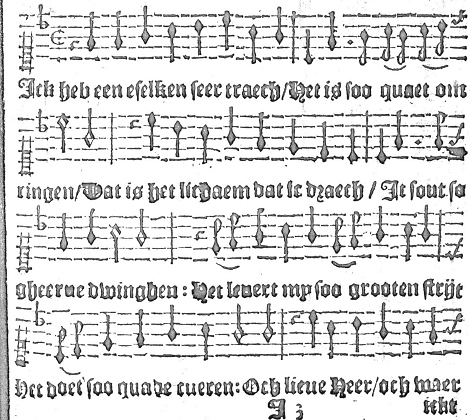 Ick heb een eselken seer traech/Het is soo quaet om
ringen/Dat is het lichaem dat ic draech / Ic sout so
gheerne dwinghen: Het levert my soo grooten strijt
Het doet soo quade cueren: Och lieue Heer/och waer
A 3 icht